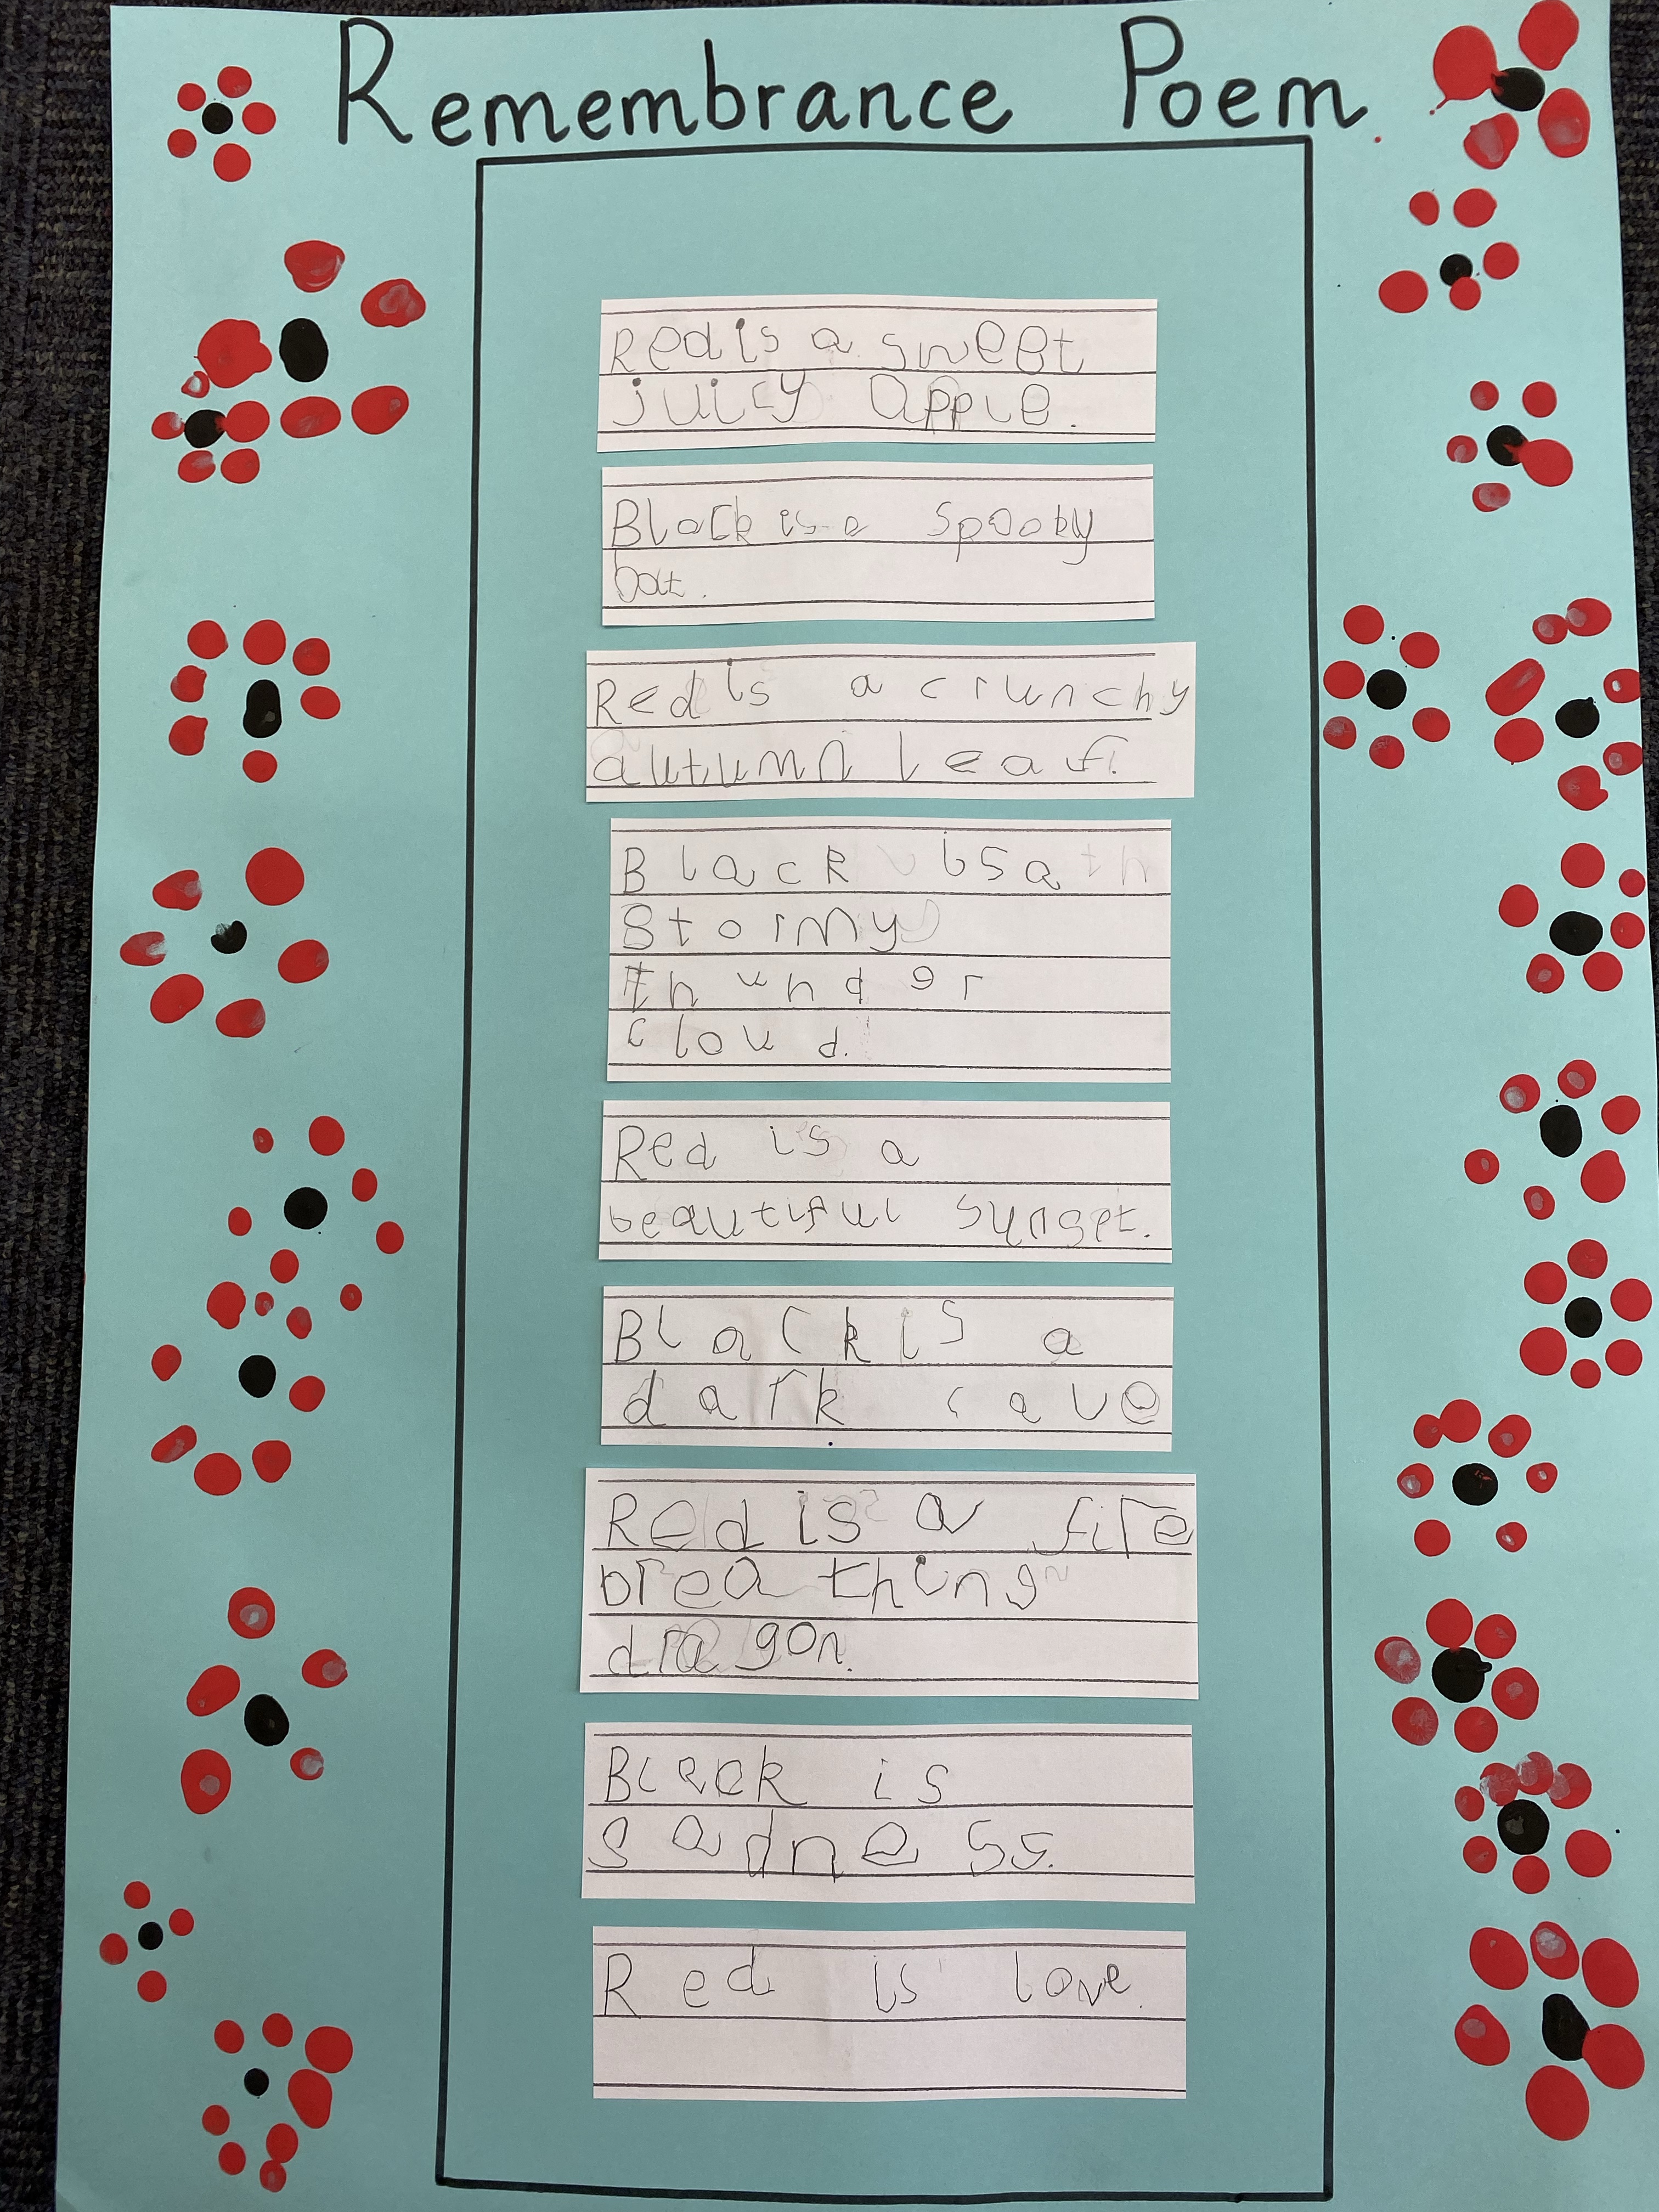 Remembrance Poem
Red is a sweet
juicy apple.
Black is a spooky
bat.
Red is a crunchy
autumn leaf.
Black is a
stormy
thunder
cloud.
Red is a
beautiful sunset.
Black is a
dark cave
Red is a fire
breathing
dragon.
Black is
sadness.
Red is love.